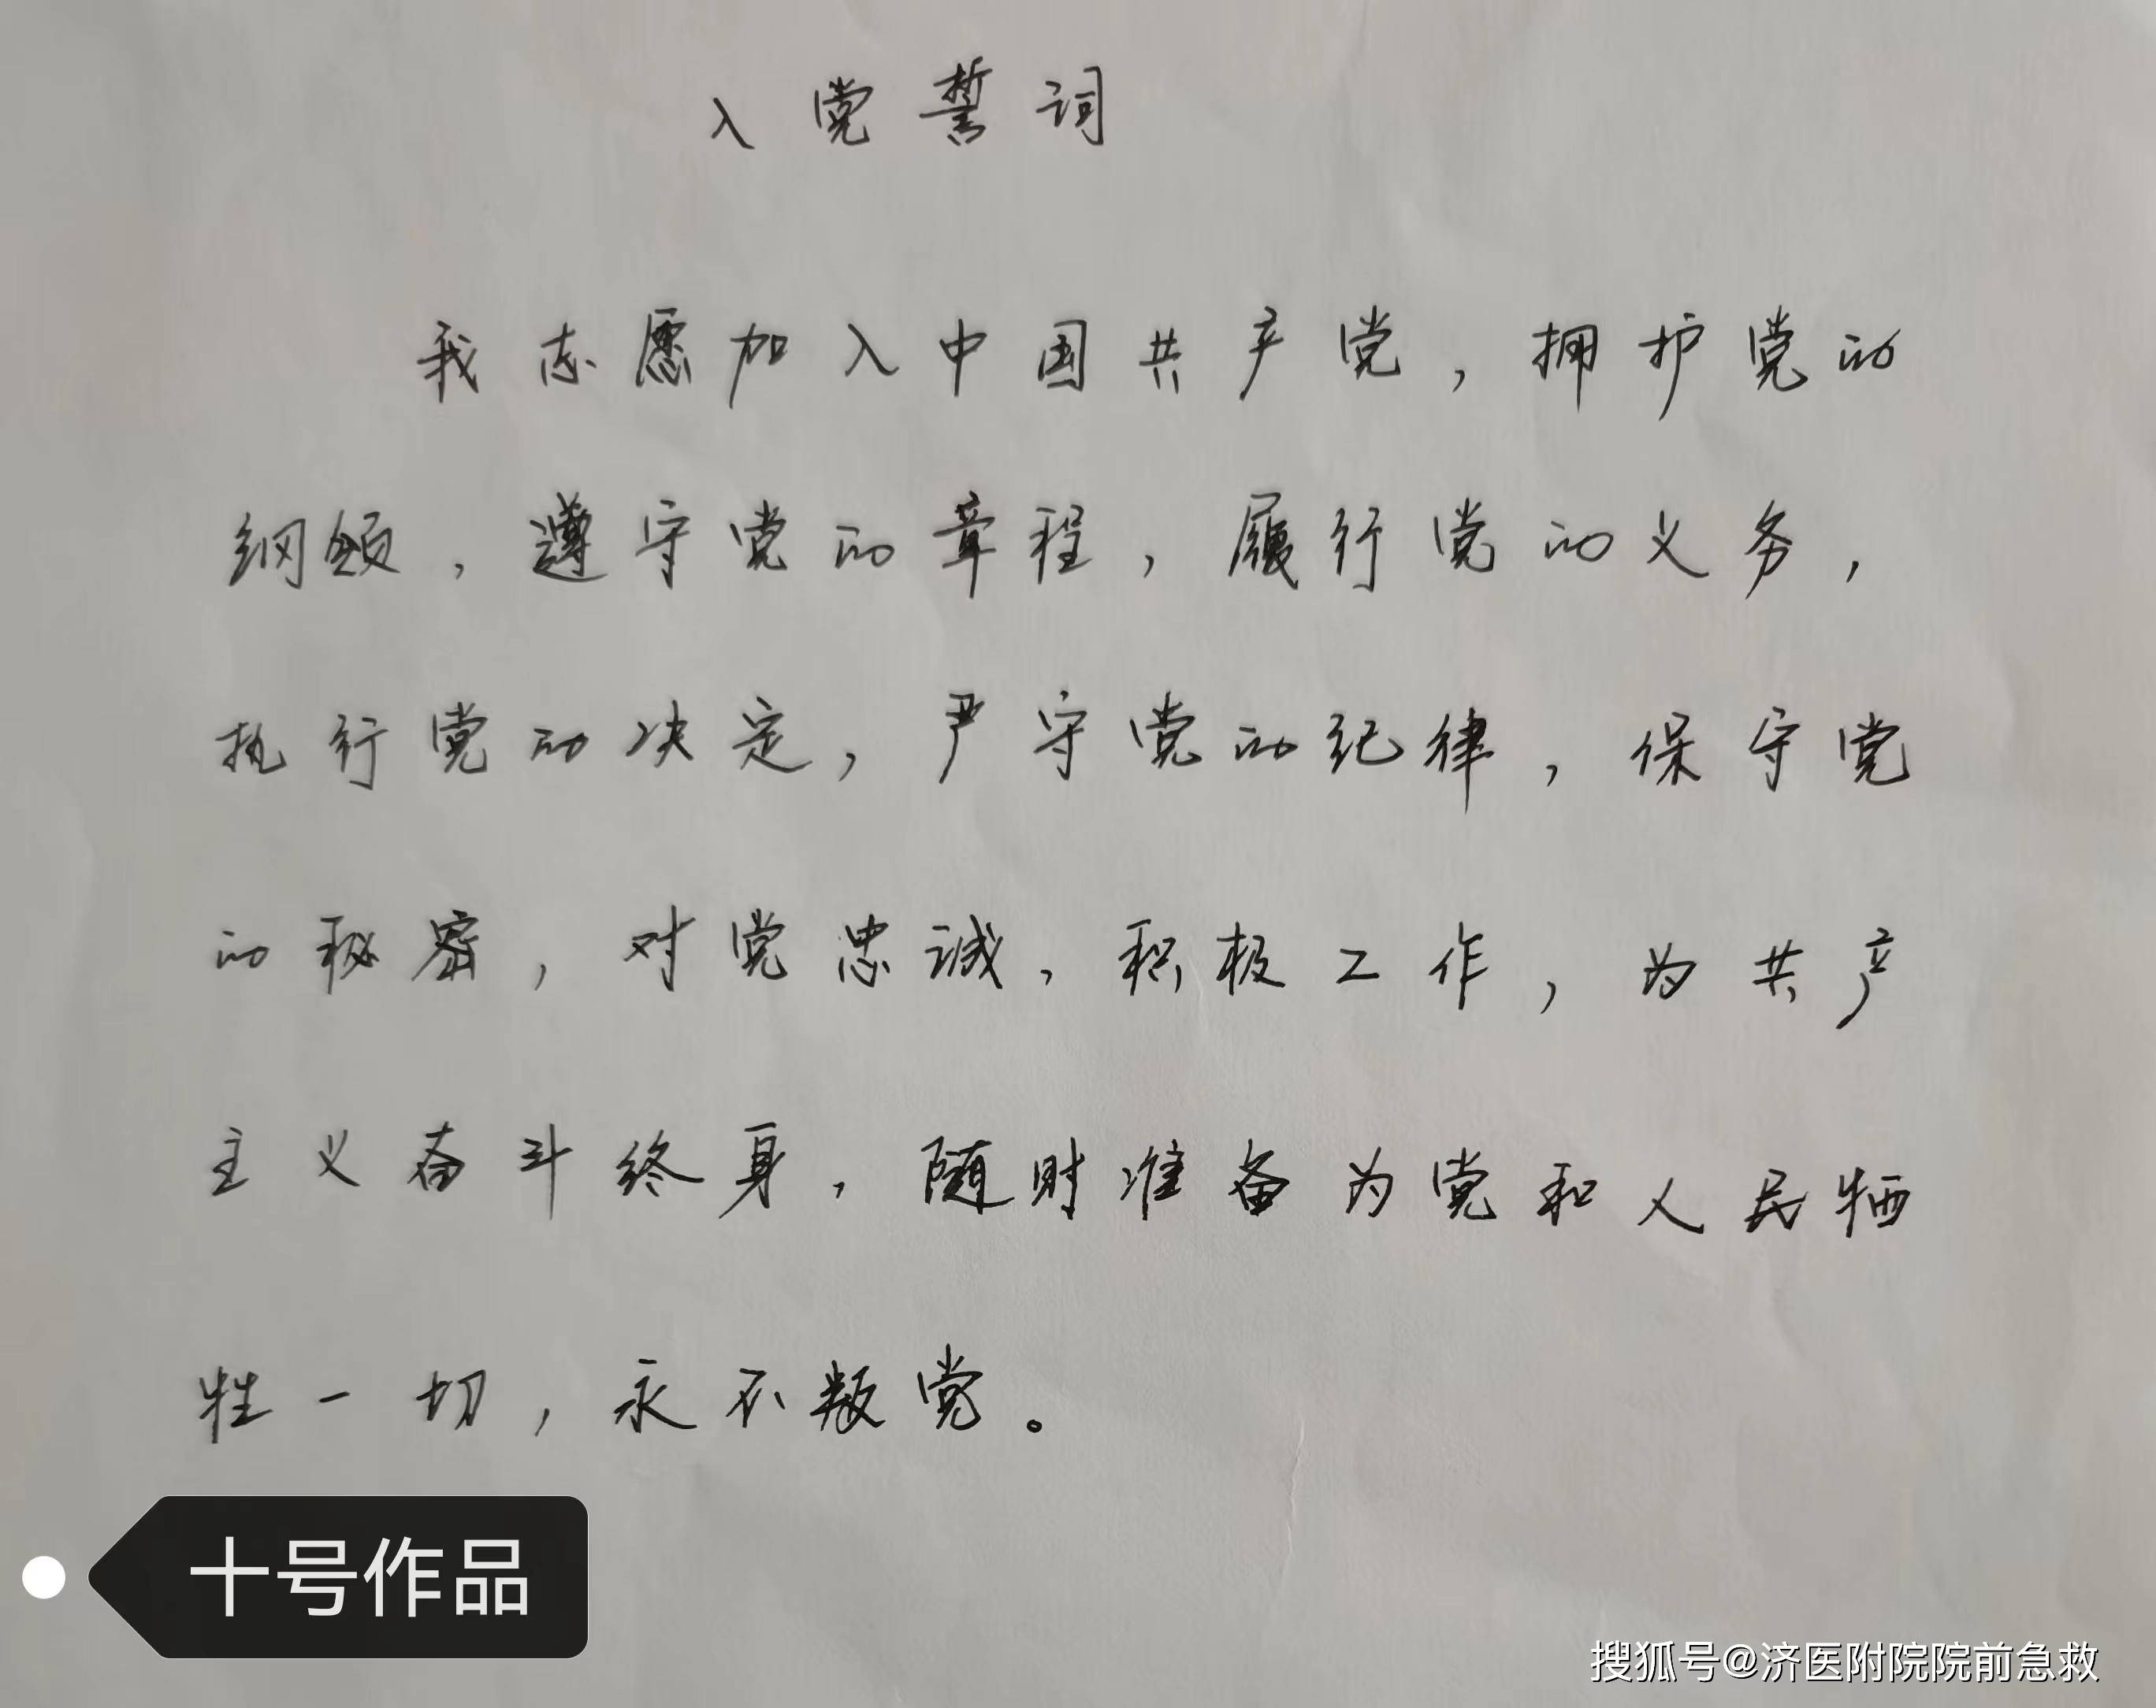 入党誓词
我志愿加入中国共产党，拥护党的
纲领，遵守党的章程，履行党的义务，
执行党的决定，严守党的纪律，保守党
的秘密，对党忠诚，积极工作，为共产
主义奋斗终身，随时准备为党和人民牺
牲一切，永不叛党。
十号作品
搜狐号@济医附院院前急救